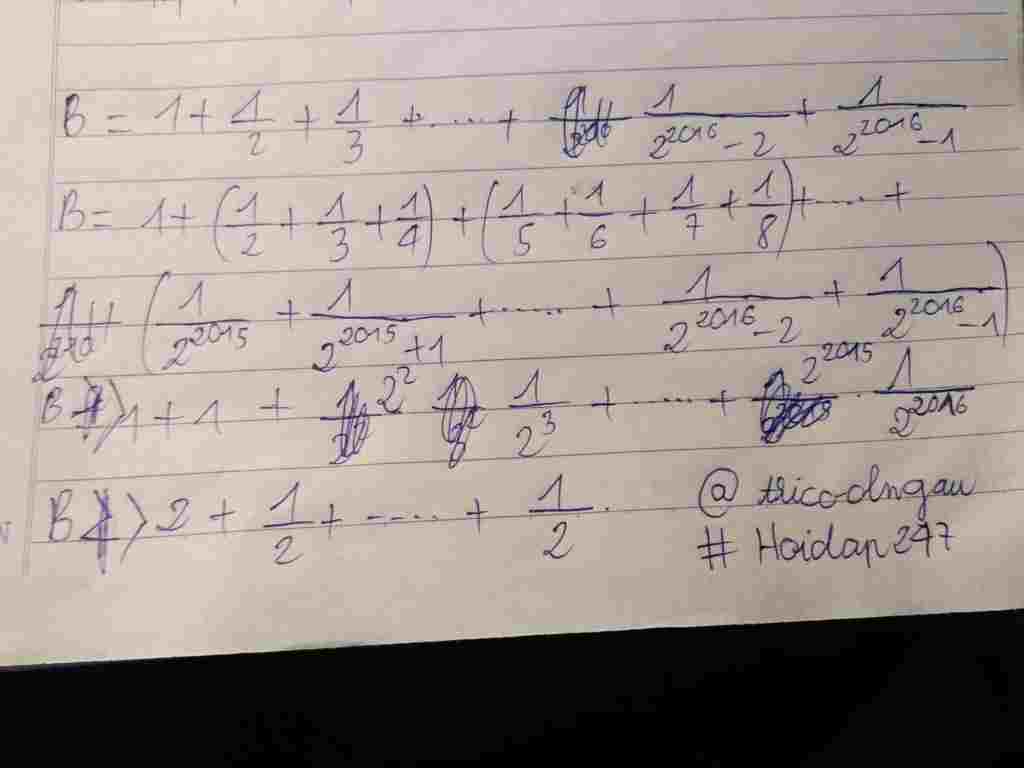 B = 1 + 1/2 + 1/3 + ..... + 1/(2^2016 - 2) + 1/(2^2016 - 1)
B = 1 + (1/2 + 1/3 + 1/4) + (1/5 + 1/6 + 1/7 + 1/8) + ..... +
(1/2^2015 + 1/(2^2015 + 1) + ...... + 1/(2^2016 - 2) + 1/(2^2016 - 1))
B > 1 + 1 + 2^2 1/2^3 + ..... + 2^2015 . 1/2^2016
B > 2 + 1/2 + ..... + 1/2 .
@tricodngau
# Hoidap247